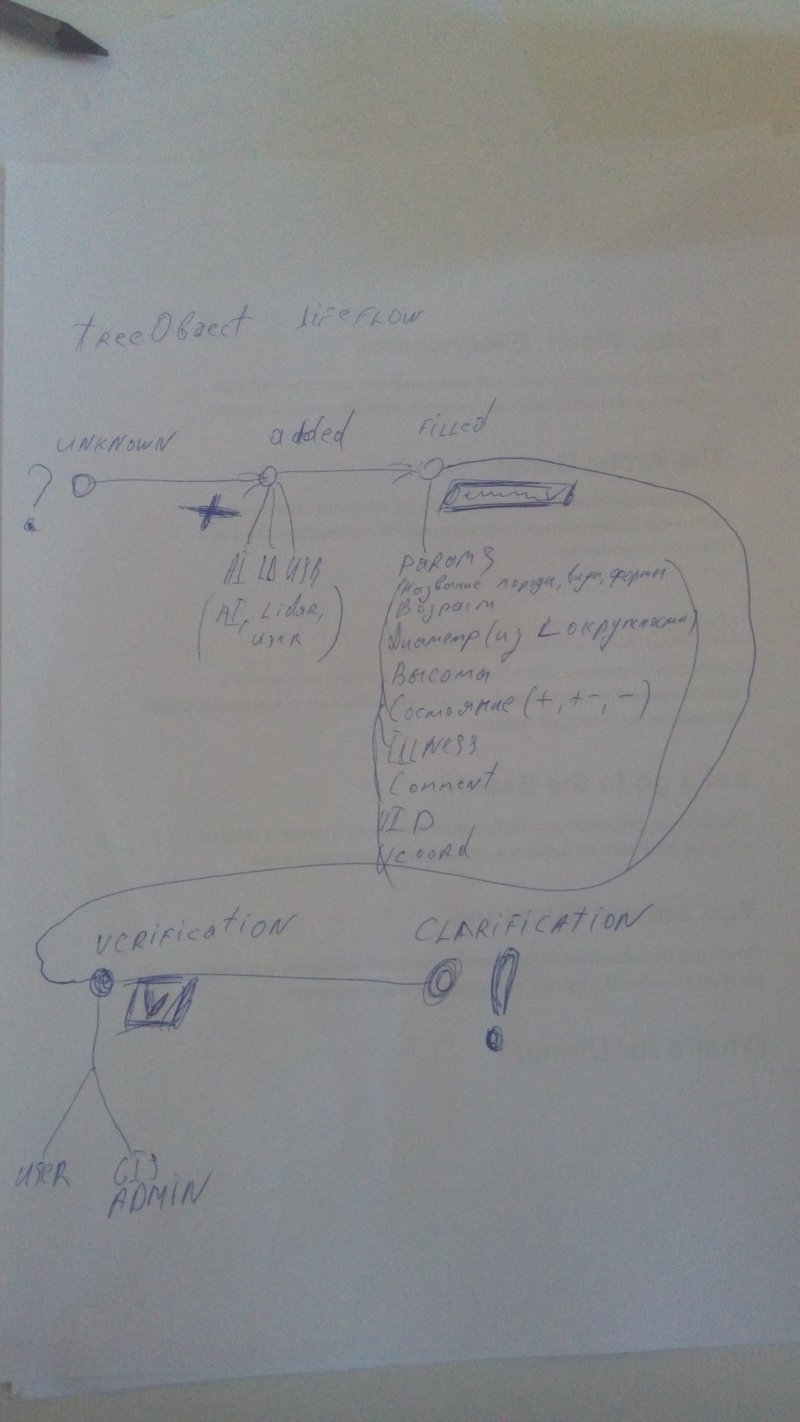 treeObject lifeFLOW
UNKNOWN added Filled
?
+
AI LD USR
(AI, Lidar,
user)
params
(Название породы, вида, формы
Возраст
Диаметр (из L окружности)
Высота
Состояние (+, +-, -)
Illness
Comment
UID
coord
VERification CLARIFICATION
V !
USER
ADMIN